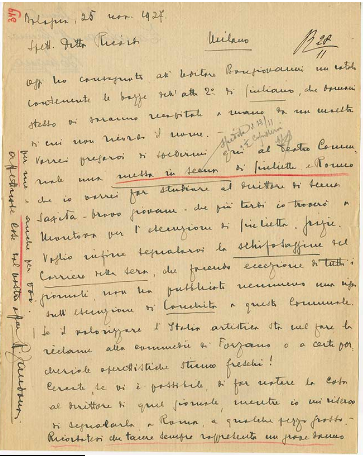 Bologna, 25 nov. 1927
Spett. Ditta Ricordi
Milano
R 28/11
Oggi ho consegnato all'editore Bongiovanni un rotolo
contenente le bozze dell'atto 2º di Giuliano, che domani
stesso vi saranno recapitate a mano da un maestro
di cui non ricordo il nome.
Vorrei pregarvi di spedirmi qui al Teatro Comu-
nale una messa in scena di Giulietta e Romeo
che io vorrei far studiare al direttore di scena
bravo giovane che più tardi io troverò a
Mantova per l'esecuzione di Giulietta. Grazie.
Voglio infine segnalarvi la schifosaggine del
Corriere della sera, che facendo eccezione di tutti i
giornali, non ha pubblicato nemmeno una riga
sull'esecuzione di Conchita a questo Comunale.
Se il valorizzare l'Italia artistica sta nel fare la
réclame alla commedia di Forzano o a certe por-
cheriole operettistiche stiamo freschi!
Cercate, se vi è possibile, di far notare la cosa
al direttore di quel giornale, mentre io mi riservo
di segnalarla, a Roma, a qualche pezzo grosso.
Ricordatevi che tacere sempre rappresenta un grave danno
per me e anche per voi.
Affettuose cose dal vostro aff. R Zandonai